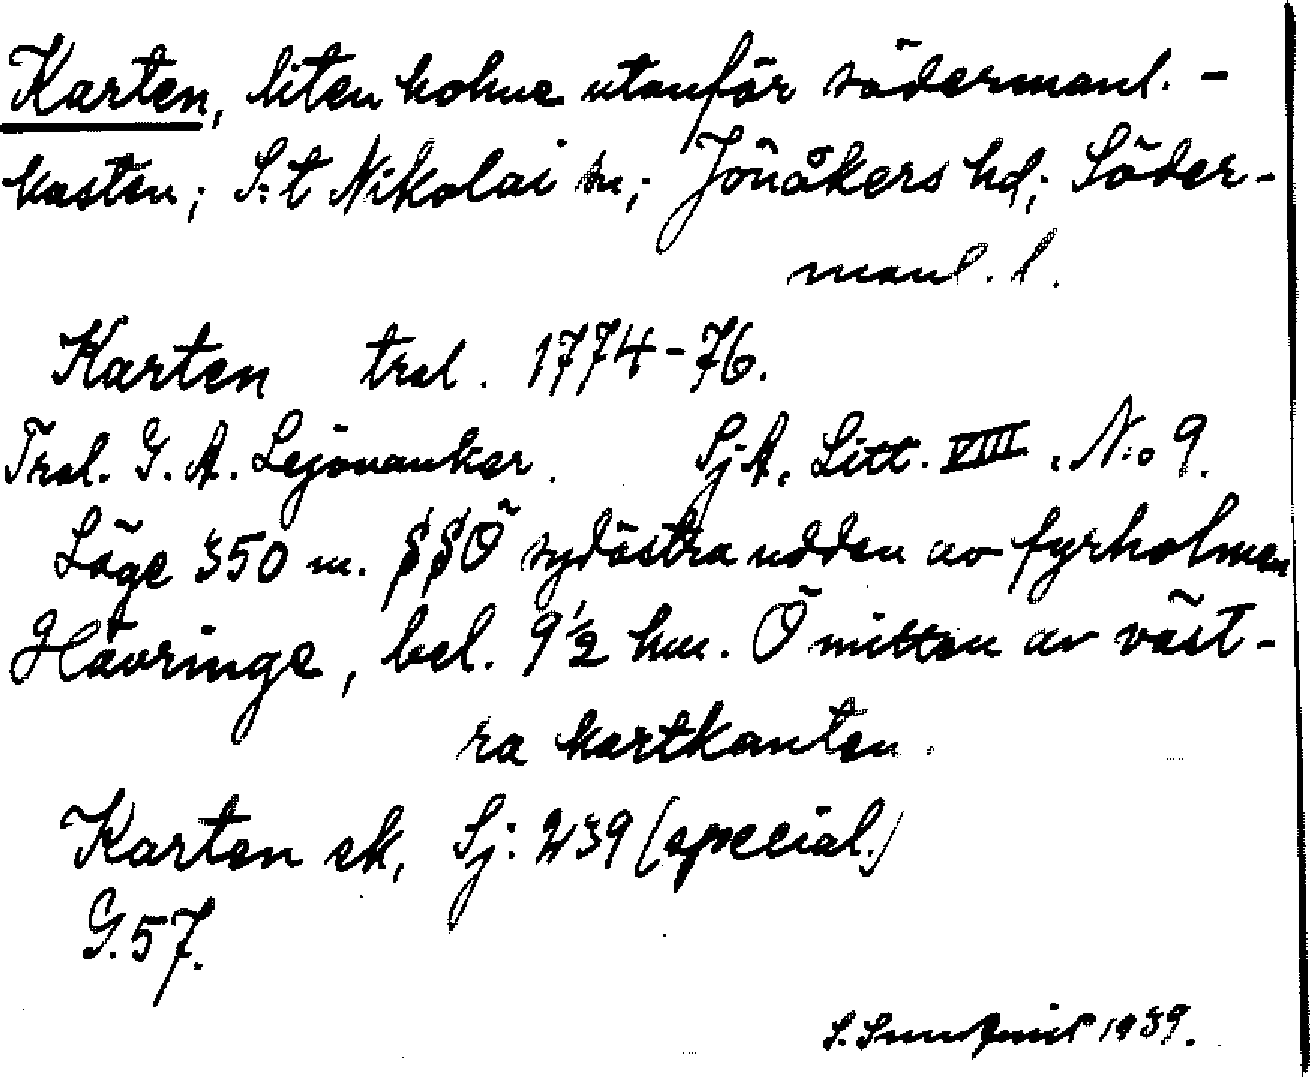 Karten, liten holme utanför södermanl. -
kusten; S:t Nikolai sn; Jönåkers hd; Söder-
manl. l.
Karten tral. 1774-76.
Tral. G. A. Lejonanker. Sj.A. Litt. VIII. N:o 9.
Läge 350 m. SSÖ sydöstra udden av fyrholmen
Hävringe, bel. 9 1/2 km. Ö mitten av väst-
ra kartkanten.
Karten sk, Sj: 239 (special.)
G. 57.
S. 1939.